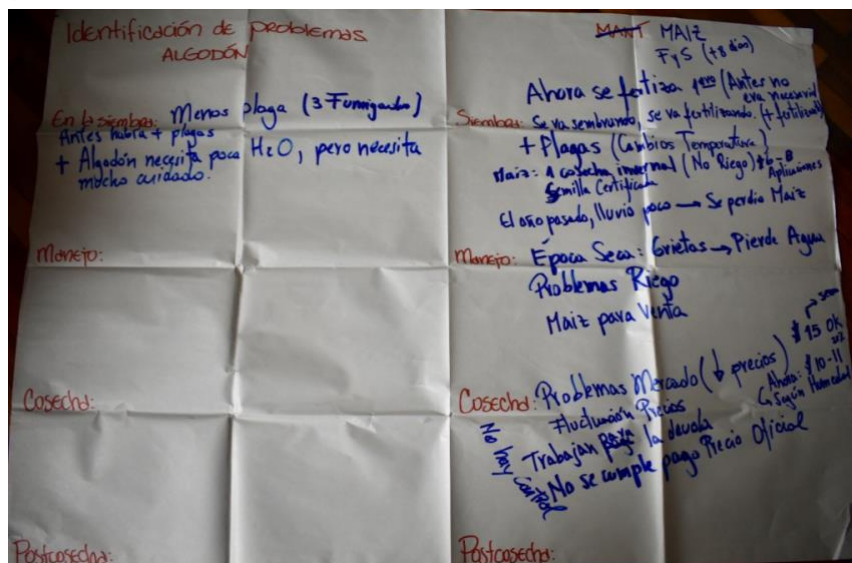 Identificación de problemas
ALGODÓN
En la siembra: Menos plaga (3 Fumigando)
Antes había + plagas
+ Algodón necesita poca H2O, pero necesita
mucho cuidado.
Manejo:
Cosecha:
Postcosecha:
MANT MAIZ
FyS (+8 días)
Ahora se fertiliza 1ero (Antes no
era necesario)
Siembra: Se va sembrando, se va fertilizando. (+ fertilizant)
+ Plagas (Cambios Temperatura)
Maiz: 1 cosecha invernal (No Riego) 6-8
Aplicaciones
Semilla Certificada
El año pasado, lluvio poco → Se perdio Maiz
Manejo: Época Seca: Grietas → Pierde Agua
Problemas Riego
Maiz para Venta
Cosecha: Problemas Mercado (↓ precios) $15 OK
Ahora: $10-11
Según Humedad
Fluctuación Precios
Trabajan para la deuda
No se cumple pago Precio Oficial
No hay control
Postcosecha: